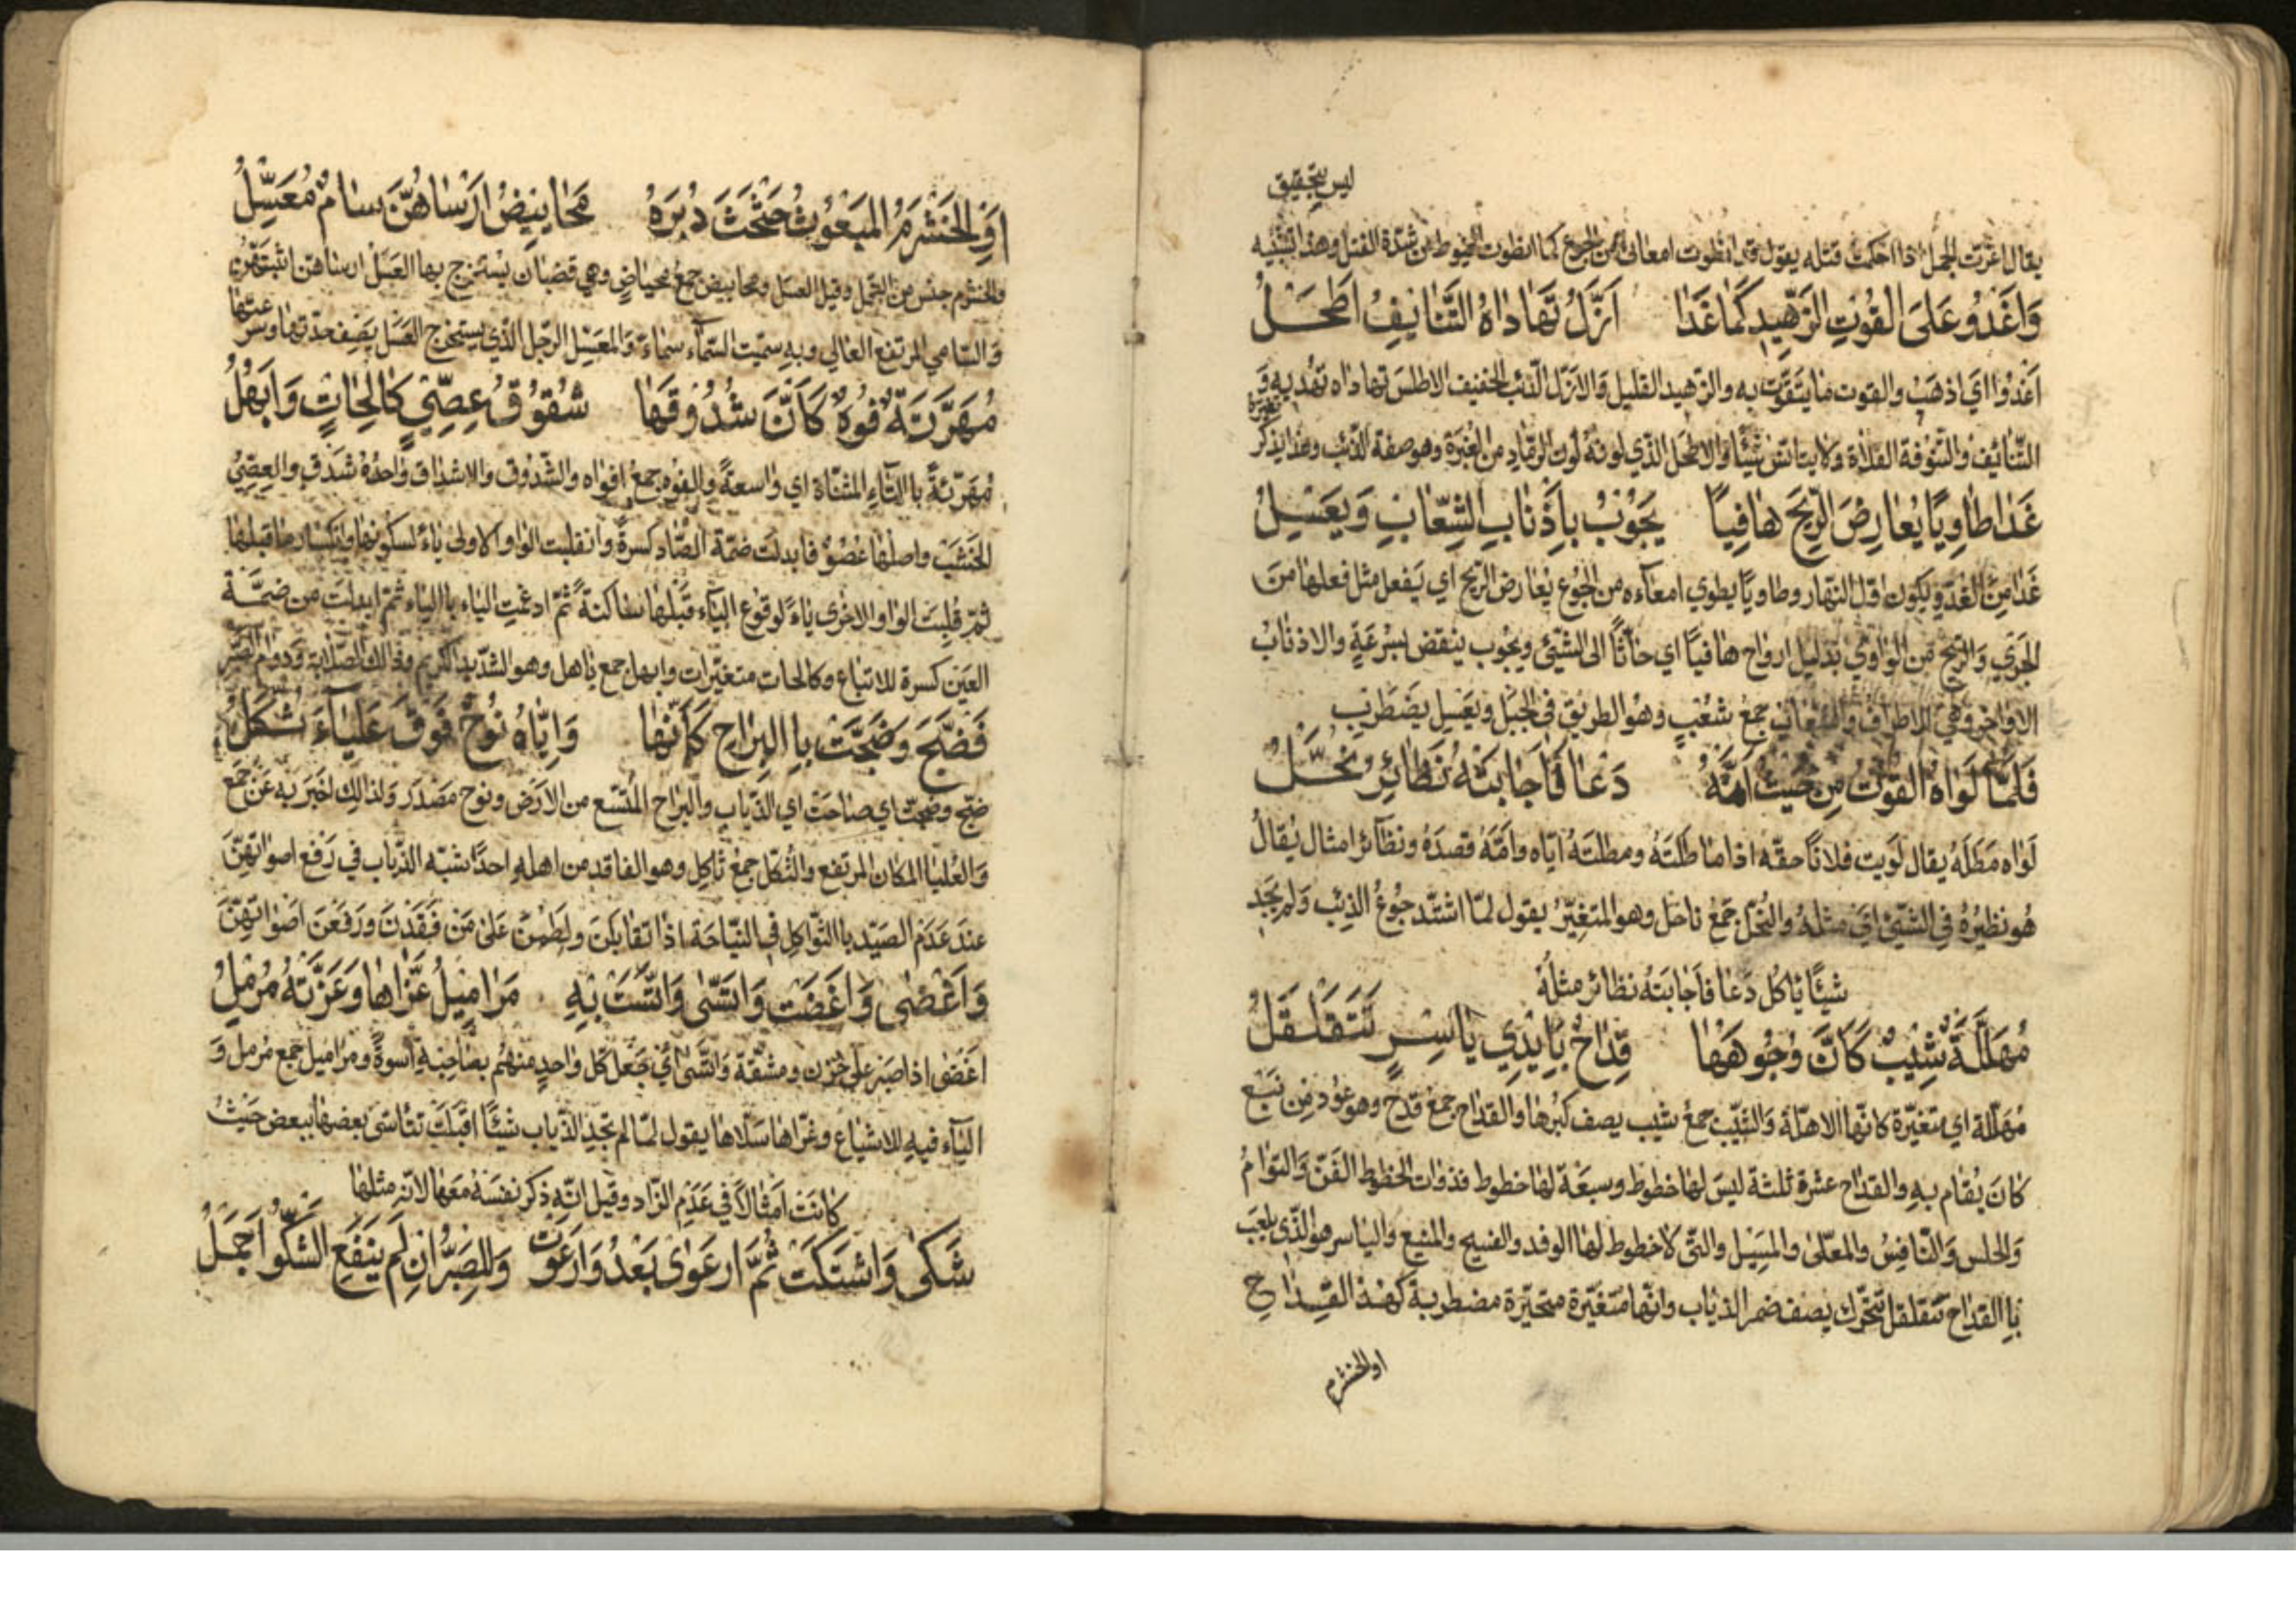 ليس بتحقيق
يقال اغرت الحبل اذا احكمت فتله يقول قد انطوت امعائى من الجوع كما انطوت الخيوط من شدة الفتل وهذا تشبيه
وَاَغْدُو عَلَى القُوتِ الزَّهِيدِ كَمَا غَدَا اَزَلُّ تَهَادَاهُ التَّنَايِفُ اَطْحَلُ
اغدوا اي اذهب والقوت ما يتقوت به والزهيد القليل والازل الذئب الخفيف الاطلس تهاداه تهديه و
التنائيف والتنوفة الفلاة ولا يتانس شيئا والاطحل الذي لونه لون الرماد من الغبرة وهو صفة الذئب وغدا يذكر
غَدَا طَاوِيًا يُعَارِضُ الرِّيحَ هَافِيًا يَجُوبُ بِاَذْنَابِ الشِّعَابِ وَيَعْسِلُ
غدا من الغدو يكون اول النهار وطاويًا يطوي امعاءه من الجوع يعارض الريح اي يفعل مثل فعلها من
الجري والريح من الواوي بدليل ارواح هافيًا اي حاثًا الى الشيئ ويجوب ينقض بسرعة والاذناب
الاواخر وهي الاطراف والشعاب جمع شعب وهو الطريق في الجبل ويعسل يضطرب
فَلَمَّا لَوَاهُ القُوتُ مِن حَيْثُ اَمَّهُ دَعَا فَاَجَابَتْهُ نَظَائِرُ نُحَّلُ
لواه مطله يقال لويت فلانًا حقه اذا ماطلته ومطلته اياه وامّه قصده ونظائر امثال يقال
هو نظيره في الشيئ اي مثله والنحل جمع ناحل وهو المتغير يقول لما اشتد جوع الذئب ولم يجد
شيئًا ياكل دعا فاجابته نظائر مثله
مُهَلَّلَةٌ شِيبٌ كَاَنَّ وُجُوهَهَا قِدَاحٌ بِاَيْدِي يَاسِرٍ تَتَقَلْقَلُ
مهللة اي متغيرة كانها الاهلة والشيب جمع شيب يصف كبرها والقداح جمع قدح وهو عود من نبع
كان يقام به والقداح عشرة ثلثة ليس لها خطوط وسبعة لها خطوط فذوات الخطوط الفذ والتوام
والحلس والنافس والمعلى والمسبل والتى لا خطوط لها الوفد والفسيح والمنيع والياسر هو الذي يلعب
باالقداح تتقلقل تتحرك يصف ضمر الذياب وانها متغيرة متحيرة مضطربة كهذه القداح
اوالخشرم
اَوِ الخَشْرَمُ المَبْعُوثُ حَثْحَثَ دَبْرَهُ مَحَابِيضُ اَرْسَاهُنَّ سَامٌ مُعَسِّلُ
والخشرم جنس من النحل وقيل العسل ومحابيض جمع محياض وهي قضبان يستخرج بها العسل ارساهن اثبتهن
والسامي المرتفع العالي وبه سميت السماء سماء والمعسل الرجل الذي يستخرج العسل يصف حدتها وسرعتها
مُهَرَّتَةٌ فُوهٌ كَاَنَّ شُدُوقَهَا شُقُوقُ عِصِيٍّ كَالِحَاتٍ وَاَبْهُلُ
مهرتة باالتاء المثناة اي واسعة والفوه جمع افواه والشدوق والاشداق واحده شدق والعصي
الخشب واصلها عصوو فابدلت ضمة الصاد كسرة وانقلبت الواو الاولى ياء لسكونها وانكسار ما قبلها
ثم قلبت الواو الاخرى ياء لوقوع الياء قبلها ساكنة ثم ادغمت الياء باالياء ثم ابدلت من ضمة
العين كسرة للاتباع وكالحات متغيرات وابهل جمع باهل وهو الشديد الكريم وذالك الصلابة ودوام الضر
فَضَجَّ وَضَجَّتْ بِاالبَرَاحِ كَاَنَّهَا وَاِيَّاهُ نُوحٌ فَوْقَ عَلْيَاءَ ثُكَّلُ
ضج وضجت اي صاحت اي الذياب والبراح المتسع من الارض ونوح مصدر ولذالك اخبر به عن جمع
والعليا المكان المرتفع والثكل جمع ثاكل وهو الفاقد من اهله احدًا شبه الذياب في رفع اصواتهن
عند عدم الصيد باالثواكل في النياحة اذا تقابلن ولطمن على من فقدن ورفعن اصواتهن
وَاَغْضَى وَاَغْضَتْ وَاتَّسَى وَاتَّسَتْ بِهِ مَرَامِيلُ عَزَّاهَا وَعَزَّتْهُ مُرْمِلُ
اغضى اذا صبر على حزن ومشقة واتسى اي جعل كل واحد منهم بصاحبه اسوة ومراميل جمع مرمل و
الياء فيه للاشباع وعزاها سلاها يقول لما لم تجد الذياب شيئًا اقبلت تتاسى بعضها ببعض حيث
كانت امثالًا في عدم الزاد وقيل انه ذكر نفسه معها لانه مثلها
شَكَى وَاشْتَكَتْ ثُمَّ ارْعَوَى بَعْدُ وَارْعَوَتْ وَلَلصَّبْرُ اِن لَم يَنْفَعِ الشَّكْوُ اَجْمَلُ